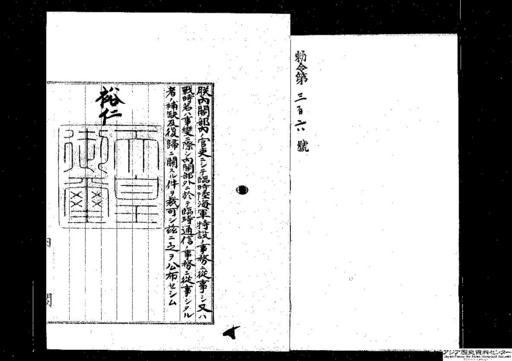 勅令第三百六號
朕內閣部內ノ官吏ニシテ臨時陸海軍特設ノ事務ニ從事シ又ハ
戰時若ハ事變ニ際シ內閣部外ニ於テ臨時通信ノ事務ニ從事シタル
者ノ補缺及復歸ニ關スル件ヲ裁可シ茲ニ之ヲ公布セシム
裕仁
天皇
御璽
內閣
アジア歴史資料センター
Japan Center for Asian Historical Records